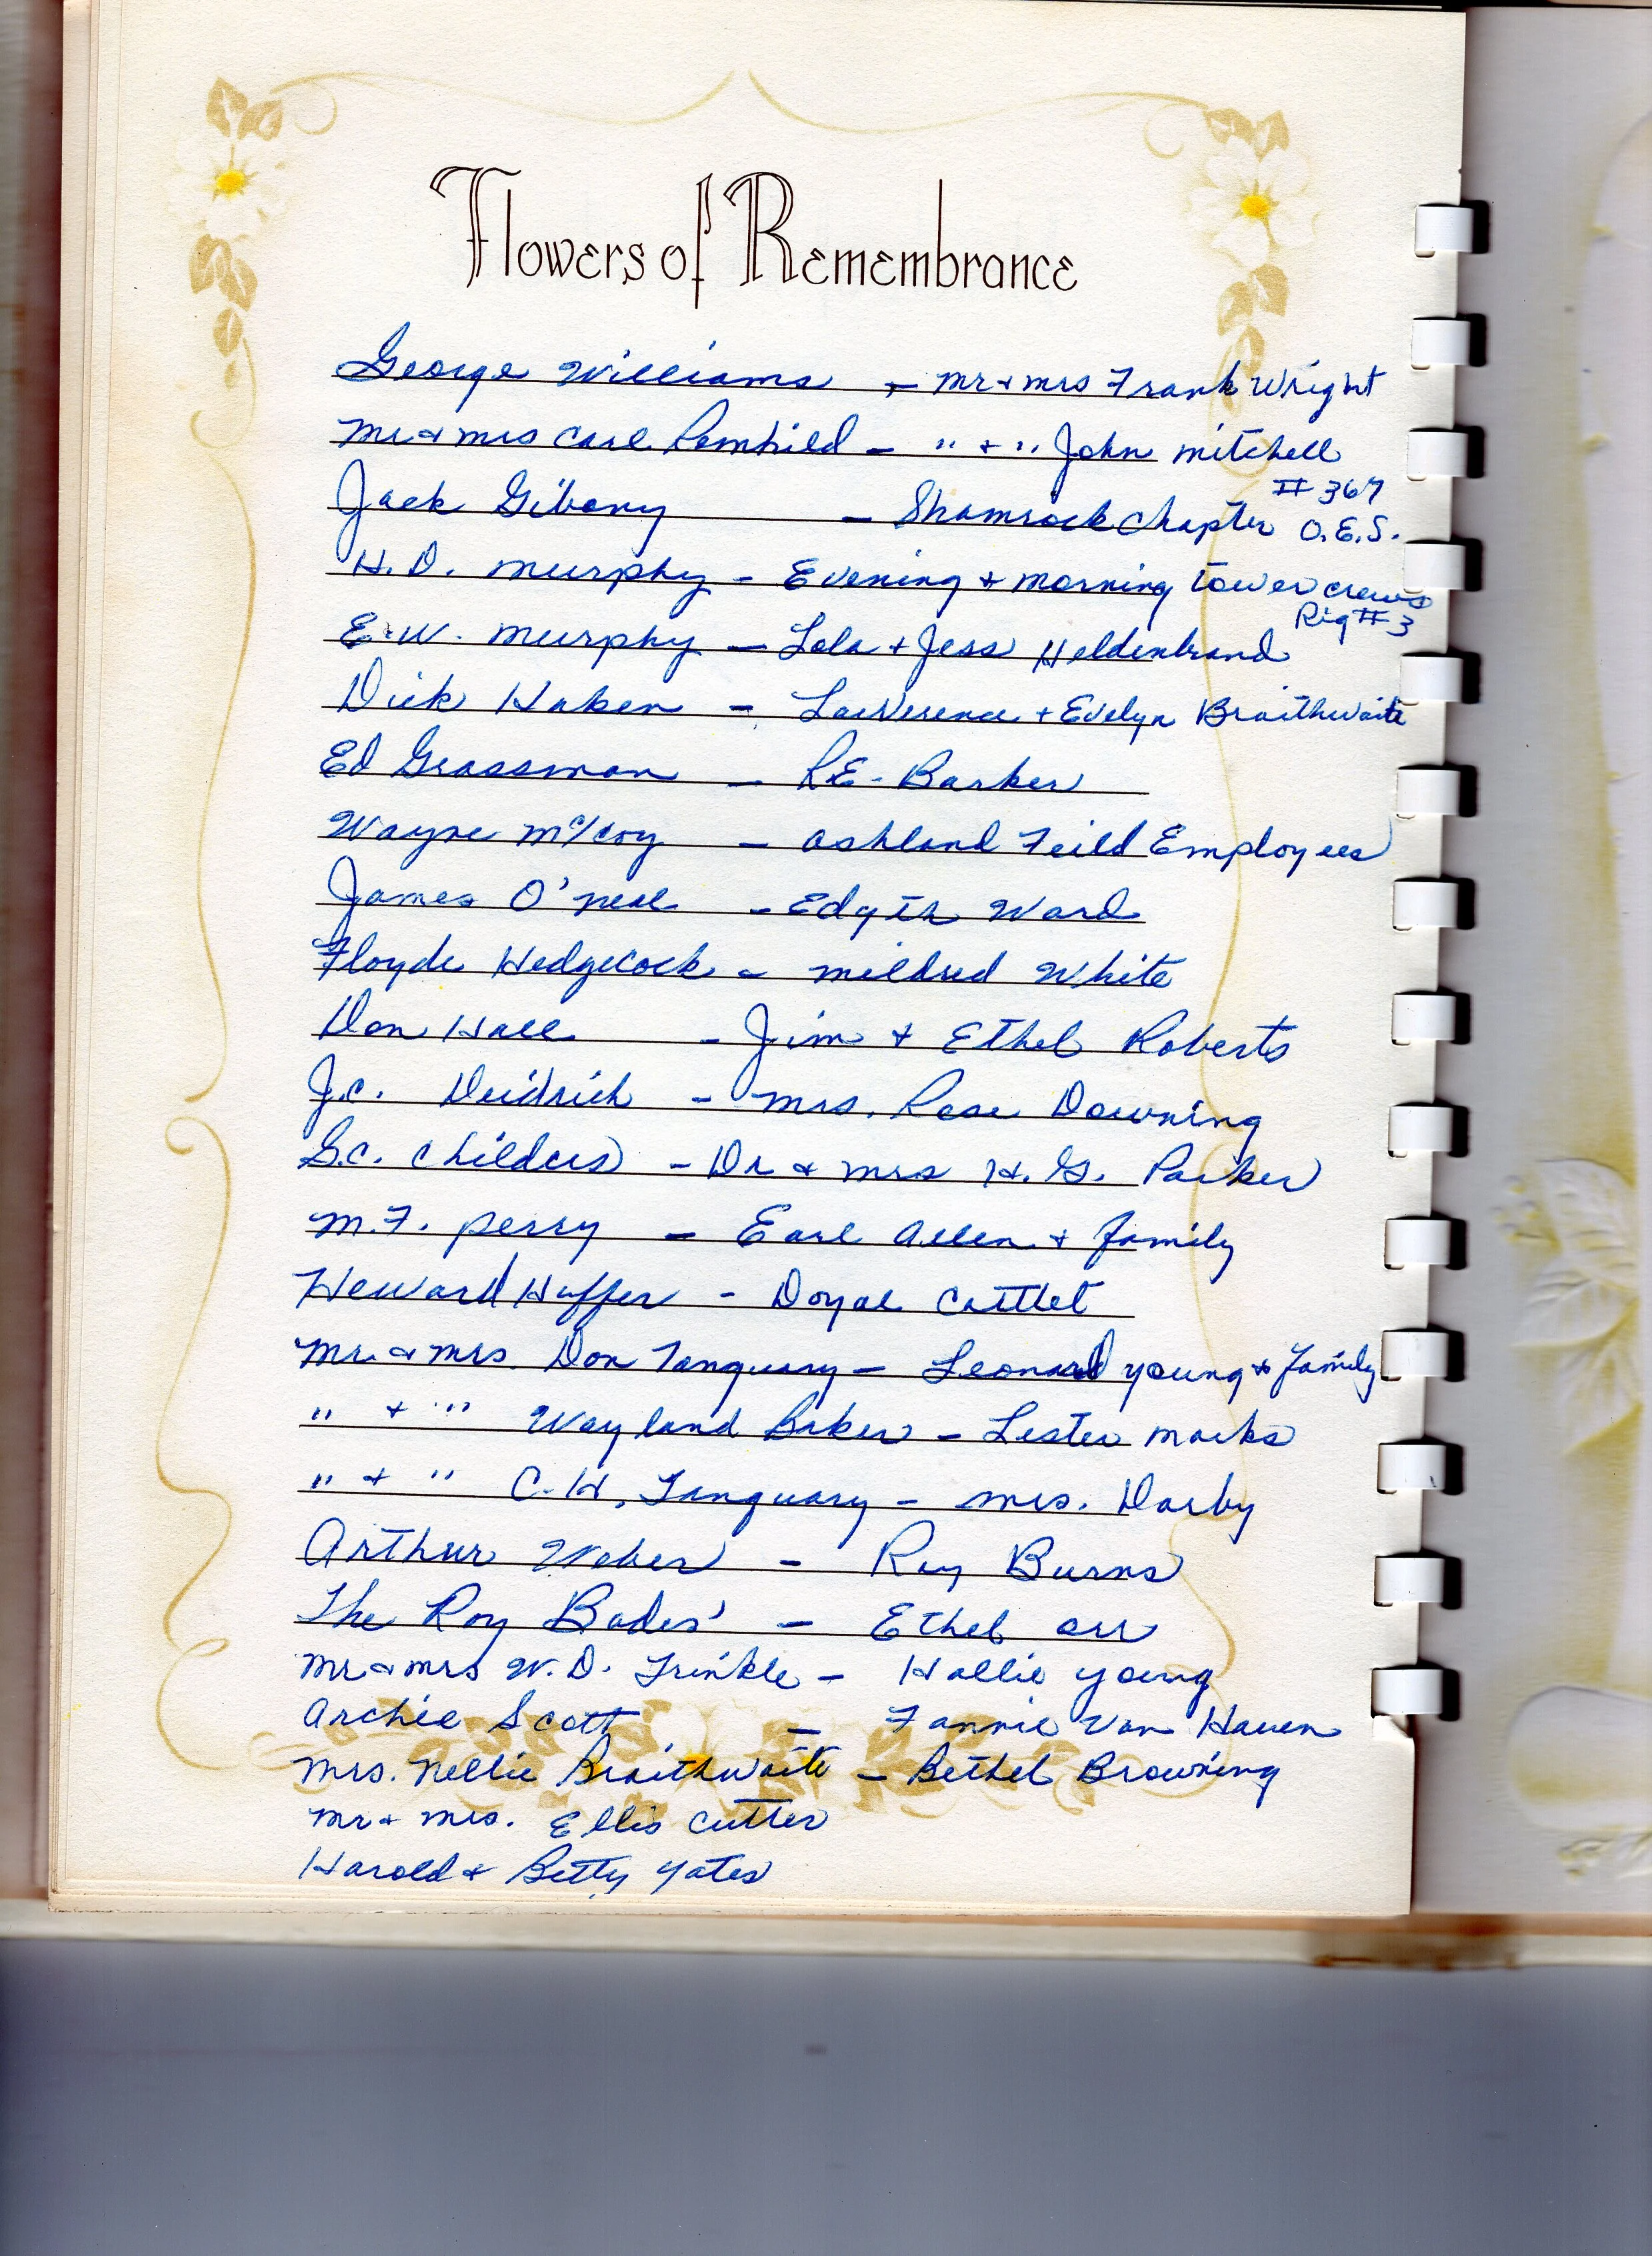 Flowers of Remembrance
George Williams - mr & mrs Frank Wright
mr & mrs Carl Romhild - " + " John mitchell
Jack Gibony - Shamrock Chapter #367 O.E.S.
H.D. murphy - Evening + morning tower crews Rig #3
E.W. murphy - Lola + Jess Heldenbrand
Dick Haken - LawVerence + Evelyn Braithwaite
Ed Grassman - R.E. Barker
Wayne McCoy - Ashland Feild Employees
James O'neal - Edyth Ward
Floyde Hedgecock - mildred White
Don Hall - Jim + Ethel Roberts
J.C. Deidrich - mrs. Rose Downing
G.C. Childers - Dr & mrs H.G. Parker
M.F. perry - Earl Allen + family
Heward Huffer - Doyal Cattlet
Mr. & mrs. Don Tanquary - Leonard young & family
" + " Wayland Baker - Lester marks
" + " C.H. Tanquary - mrs. Darby
Arthur Weber - Ray Burns
The Roy Bades' - Ethel Orr
Mr & mrs W.D. Trinkle - Hallie young
Archie Scott - Fannie Van Haven
Mrs. Nellie Braithwaite - Bethel Browning
Mr & mrs. Ellis Cutter
Harold & Betty Yates